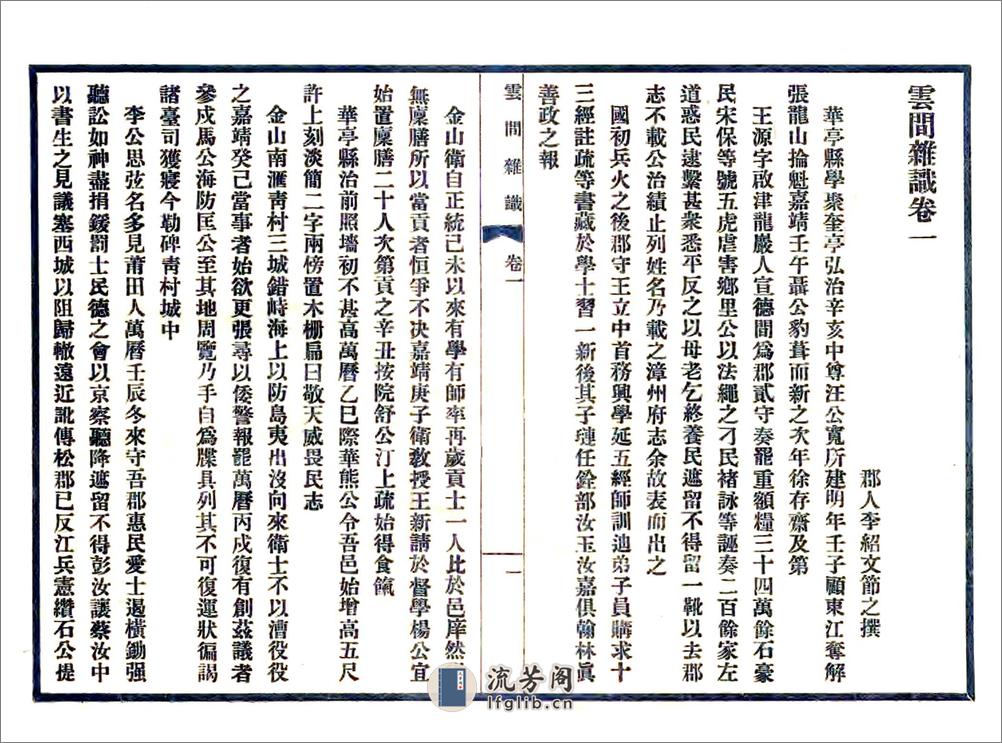 雲間雜識卷一
郡人李紹文節之撰
華亭縣學聚奎亭弘治辛亥中尊汪公寬所建明年壬子顧東江奪解
張龍山掄魁嘉靖壬午聶公豹葺而新之次年徐存齋及第
王源字啟津龍巖人宣德間爲郡貳守奏罷重額糧三十四萬餘石豪
民宋保等號五虎虐害鄉里公以法繩之刁民禇詠等誣奏二百餘家左
道惑民逮繫甚衆悉平反之以母老乞終養民遮留不得留一靴以去郡
志不載公治績止列姓名乃載之漳州府志余故表而出之
國初兵火之後郡守王立中首務興學延五經師訓迪弟子員購求十
三經註疏等書藏於學士習一新後其子璉任銓部汝玉汝嘉俱翰林眞
善政之報
雲間雜識
卷一
一
金山衛自正統己未以來有學有師率再歲貢士一人比於邑庠然
無廩膳所以當貢者恒爭不决嘉靖庚子衛教授王新請於督學楊公宜
始置廩膳二十人次第貢之辛丑按院舒公汀上疏始得食餼
華亭縣治前照墻初不甚高萬曆乙巳際華熊公令吾邑始增高五尺
許上刻淡簡二字兩傍置木柵扁曰敬天威畏民志
金山南滙靑村三城錯峙海上以防島夷出沒向來衛士不以漕役役
之嘉靖癸己當事者始欲更張尋以倭警報罷萬曆丙戍復有創茲議者
參戍馬公海防匡公至其地周覽乃手自爲牒具列其不可復運狀徧謁
諸臺司獲寢今勒碑靑村城中
李公思弦名多見莆田人萬曆壬辰冬來守吾郡惠民愛士遏橫鋤强
聽訟如神盡捐鍰罰士民德之會以京察聽降遮留不得彭汝讓蔡汝中
以書生之見議塞西城以阻歸轍遠近訛傳松郡已反江兵憲纘石公提
流芳阁
lfglib.cn